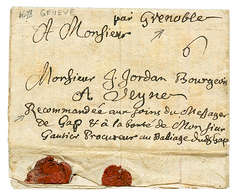 1698 GENEVE
par Grenoble
A Monsieur
6
Monsieur J Jordan Bourgeois
A Seyne
Recommandée aux soins du Messager
de Gap & à la bonté de Monsieur
Gautier Procureur au Balliage dudt Gap